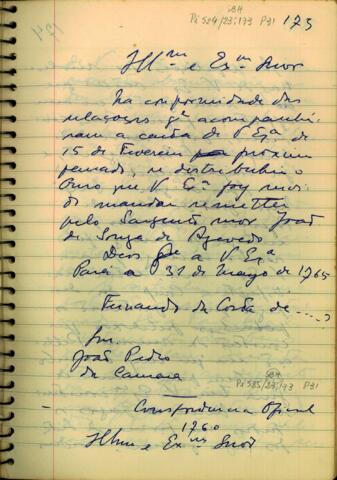 SBH
Pi 524/23;173 P31 173
Illmº e Exmº Snor
Na conformidade das
relaçoens q acompanhá
ram a carta de V Exª de
15 de Fevereiro próximo
passado, se destribuhio o
Ouro que V. Exª foy servi
do mandar remetter
pelo Sargento mor João
de Souza de Azevedo
Deos gde a V Exª
Pará a 31 de Março de 1765
Fernando da Costa de ....
Snr.
João Pedro
da Camara
SBH
Pi 525/23;173 P31
Correspondencia Oficial
1760
Illmo e Exmº Snor